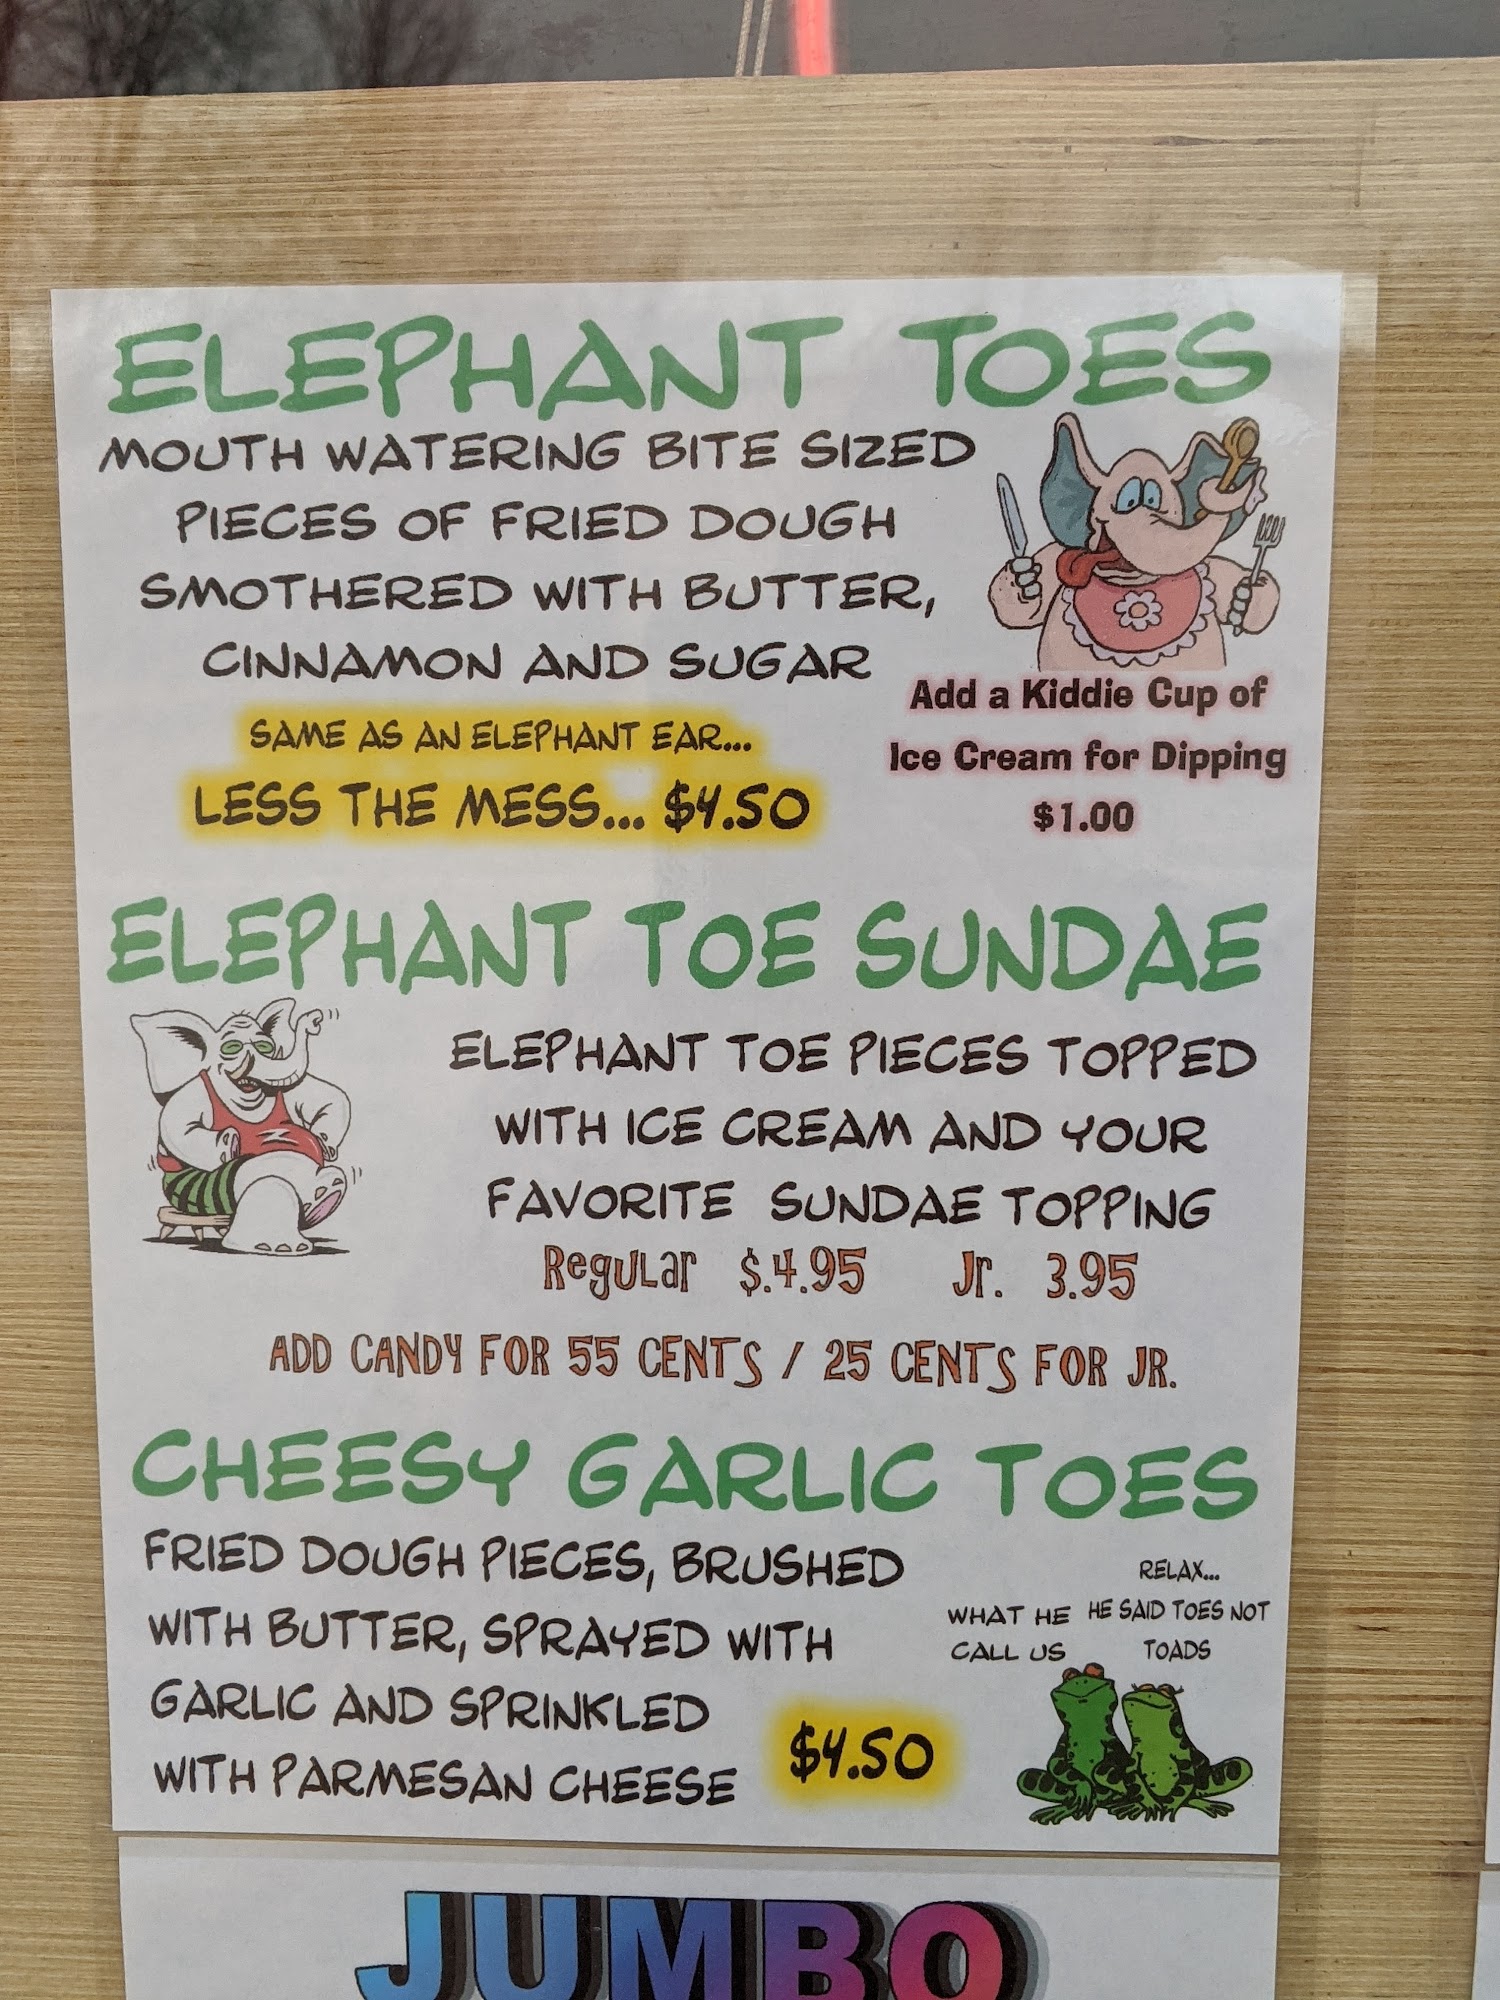 ELEPHANT TOES
MOUTH WATERING BITE SIZED
PIECES OF FRIED DOUGH
SMOTHERED WITH BUTTER,
CINNAMON AND SUGAR
SAME AS AN ELEPHANT EAR...
LESS THE MESS... $4.50
Add a Kiddie Cup of
Ice Cream for Dipping
$1.00
ELEPHANT TOE SUNDAE
ELEPHANT TOE PIECES TOPPED
WITH ICE CREAM AND YOUR
FAVORITE SUNDAE TOPPING
Regular $.4.95 Jr. 3.95
ADD CANDY FOR 55 CENTS / 25 CENTS FOR JR.
CHEESY GARLIC TOES
FRIED DOUGH PIECES, BRUSHED
WITH BUTTER, SPRAYED WITH
GARLIC AND SPRINKLED
WITH PARMESAN CHEESE
$4.50
WHAT HE
CALL US
RELAX...
HE SAID TOES NOT
TOADS
JUMBO